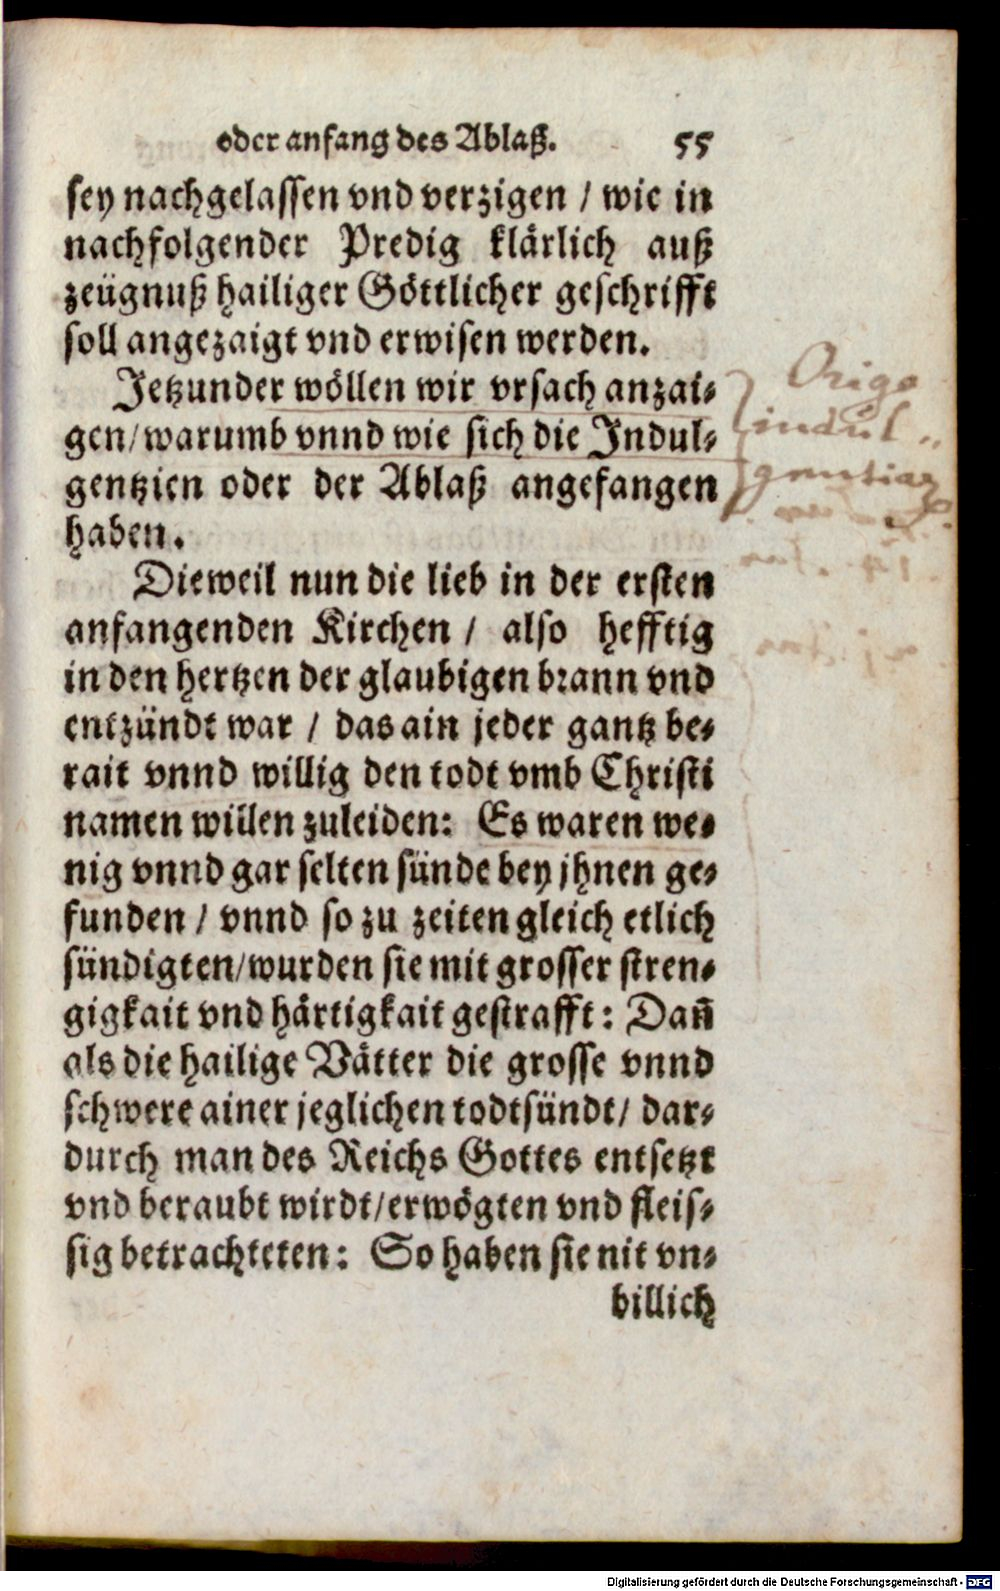 oder anfang des Ablaß. 55
sey nachgelassen vnd verzigen / wie in
nachfolgender Predig klärlich auß
zeügnuß hailiger Göttlicher geschrifft
soll angezaigt vnd erwisen werden.
Jetzunder wöllen wir vrsach anzai-
gen/warumb vnnd wie sich die Indul-
gentzien oder der Ablaß angefangen
haben.
Dieweil nun die lieb in der ersten
anfangenden Kirchen / also hefftig
in den hertzen der glaubigen brann vnd
entzündt war / das ain jeder gantz be-
rait vnnd willig den todt vmb Christi
namen willen zuleiden: Es waren we-
nig vnnd gar selten sünde bey jhnen ge-
funden / vnnd so zu zeiten gleich etlich
sündigten/wurden sie mit grosser stren-
gigkait vnd härtigkait gestrafft: Dañ
als die hailige Vätter die grosse vnnd
schwere ainer jeglichen todtsündt/ dar-
durch man des Reichs Gottes entsetzt
vnd beraubt wirdt/erwögten vnd fleis-
sig betrachteten: So haben sie nit vn-
billich
Origo
indul-
gentiar
Digitalisierung gefördert durch die Deutsche Forschungsgemeinschaft - DFG